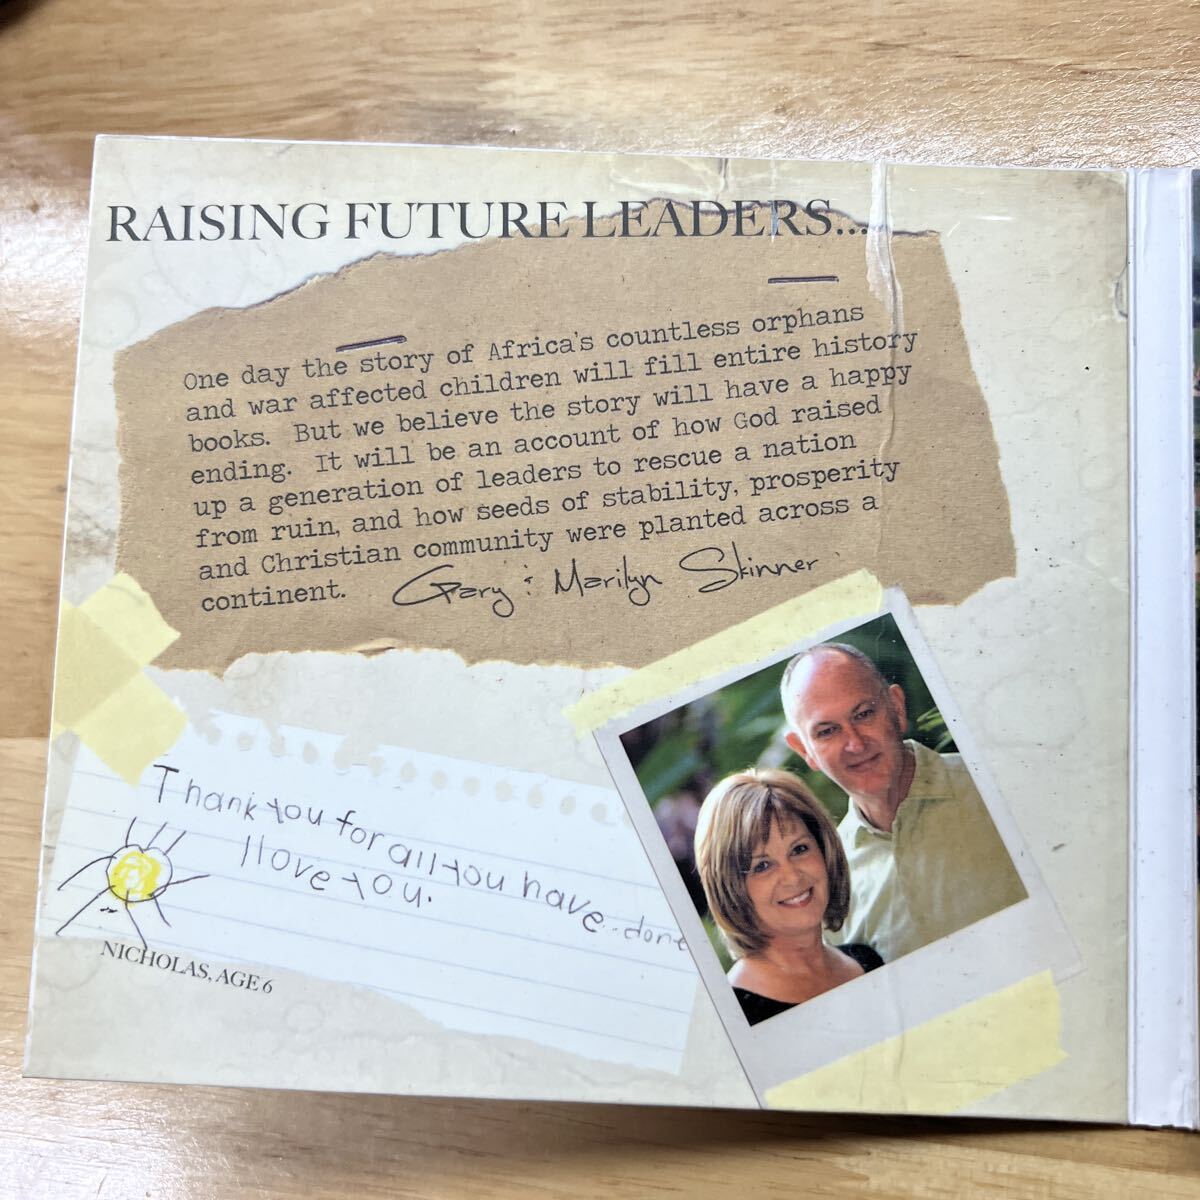 RAISING FUTURE LEADERS...
One day the story of Africa's countless orphans
and war affected children will fill entire history
books. But we believe the story will have a happy
ending. It will be an account of how God raised
up a generation of leaders to rescue a nation
from ruin, and how seeds of stability, prosperity
and Christian community were planted across a
continent. Gary & Marilyn Skinner
Thank you for all you have done
I love you.
NICHOLAS, AGE 6